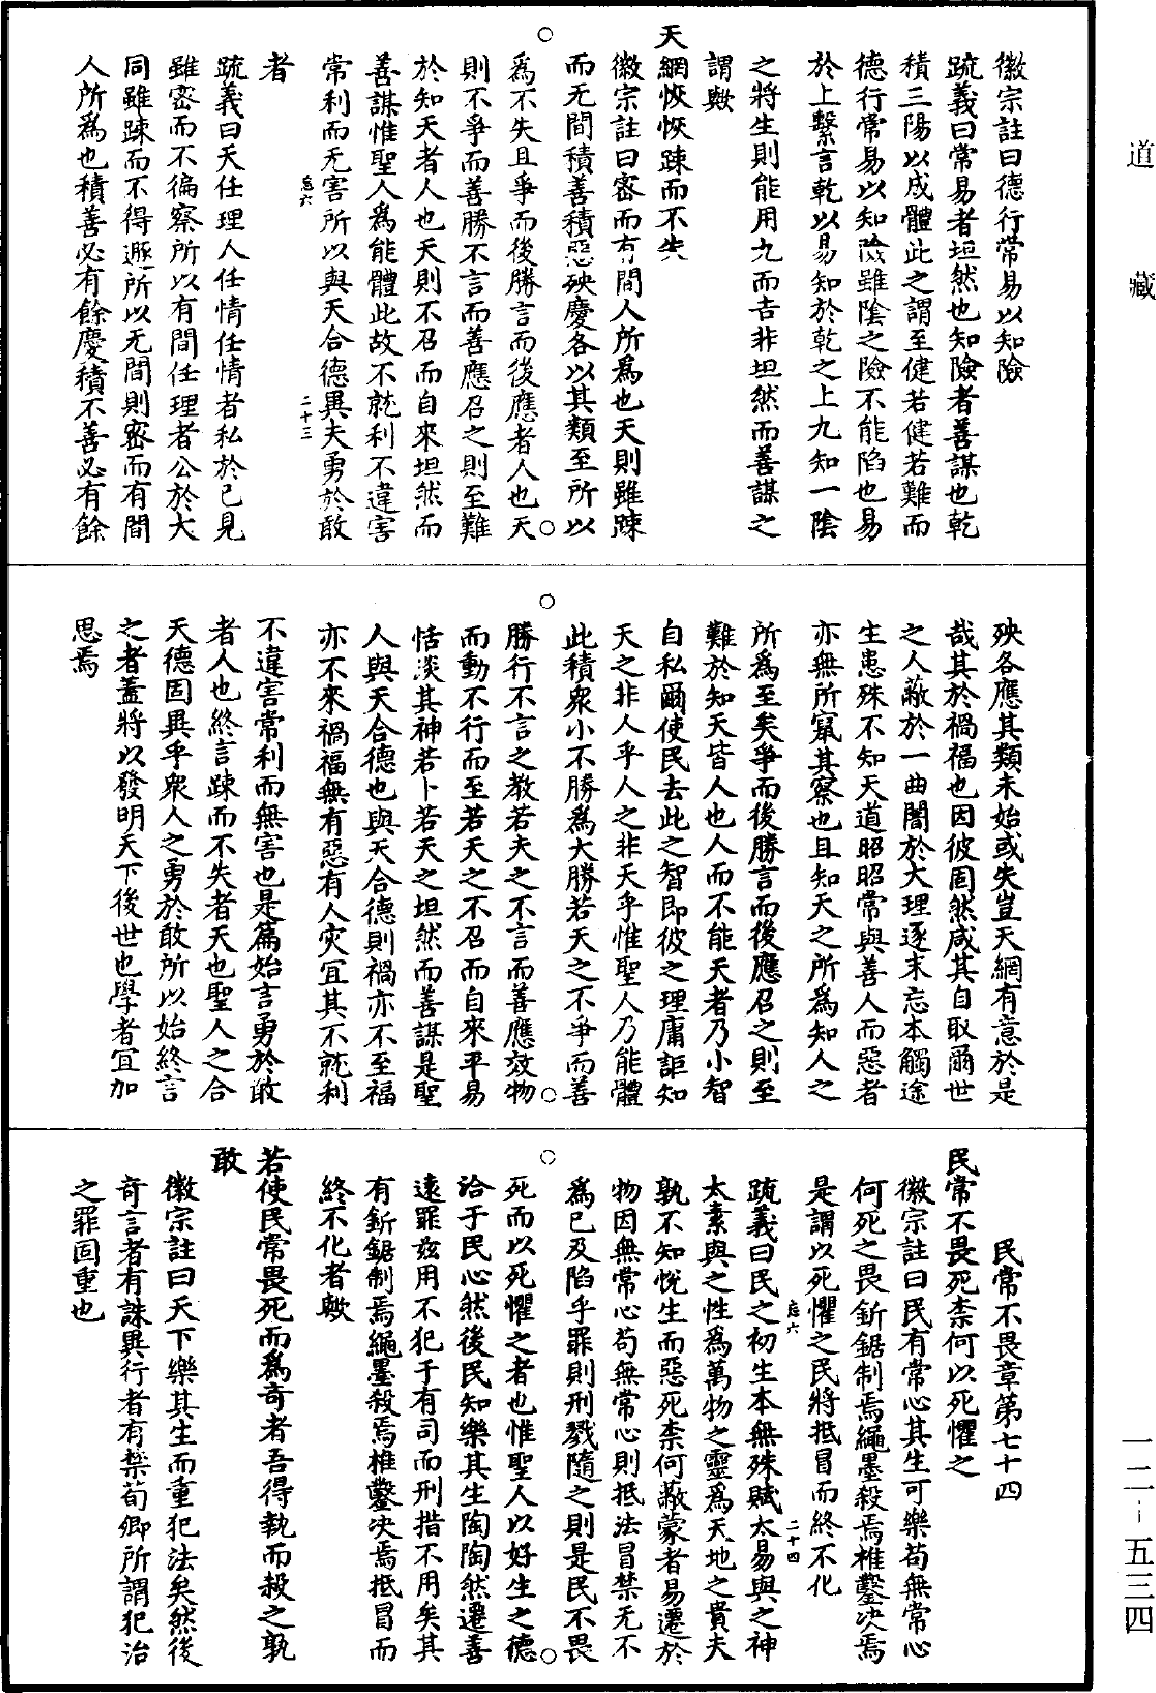 道藏
徽宗註曰德行常易以知險
疏義曰常易者坦然也知險者善謀也乾
積三陽以成體此之謂至健若健若難而
德行常易以知險雖陰之險不能陷也易
於上繫言乾以易知於乾之上九知一陰
之將生則能用九而吉非坦然而善謀之
謂歟
天網恢恢踈而不失
徽宗註曰密而有間人所為也天則雖踈
而无間積善積惡殃慶各以其類至所以
為不失且爭而後勝言而後應者人也天
則不爭而善勝不言而善應召之則至難
於知天者人也天則不召而自來坦然而
善謀惟聖人為能體此故不就利不違害
常利而无害所以與天合德異夫勇於敢
二十三
者
疏義曰天任理人任情任情者私於已見
雖密而不徧察所以有間任理者公於大
同雖踈而不得遯所以无間則密而有間
人所為也積善必有餘慶積不善必有餘
殃各應其類未始或失豈天網有意於是
哉其於禍福也因彼固然咸其自取爾世
之人蔽於一曲闇於大理逐末忘本觸途
生患殊不知天道昭昭常與善人而惡者
亦無所竄其察也且知天之所為知人之
所為至矣爭而後勝言而後應召之則至
難於知天皆人也人而不能天者乃小智
自私爾使民去此之智即彼之理庸詎知
天之非人乎人之非天乎惟聖人乃能體
此積衆小不勝為大勝若天之不爭而善
勝行不言之教若夫之不言而善應效物
而動不行而至若天之不召而自來平易
恬淡其神若卜若天之坦然而善謀是聖
人與天合德也與天合德則禍亦不至福
亦不來禍福無有惡有人灾冝其不就利
不違害常利而無害也是篇始言勇於敢
者人也終言踈而不失者天也聖人之合
天德固異乎衆人之勇於敢所以始終言
之者蓋將以發明天下後世也學者冝加
思焉
民常不畏章第七十四
民常不畏死柰何以死懼之
徽宗註曰民有常心其生可樂苟無常心
何死之畏釿鋸制焉繩墨殺焉椎鑿决焉
是謂以死懼之民將抵冒而終不化
二十四
疏義曰民之初生本無殊賦太易與之神
太素與之性為萬物之靈為天地之貴夫
孰不知悅生而惡死柰何蔽蒙者易遷於
物因無常心苟無常心則抵法冒禁无不
為已及陷乎罪則刑戮隨之則是民不畏
死而以死懼之者也惟聖人以好生之德
洽于民心然後民知樂其生陶陶然遷善
遠罪玆用不犯于有司而刑措不用矣其
有釿鋸制焉繩墨殺焉椎鑿决焉抵冒而
終不化者歟
若使民常畏死而為奇者吾得執而殺之孰
敢
徽宗註曰天下樂其生而重犯法矣然後
奇言者有誅異行者有禁荀卿所謂犯治
之罪固重也
一二-五三四